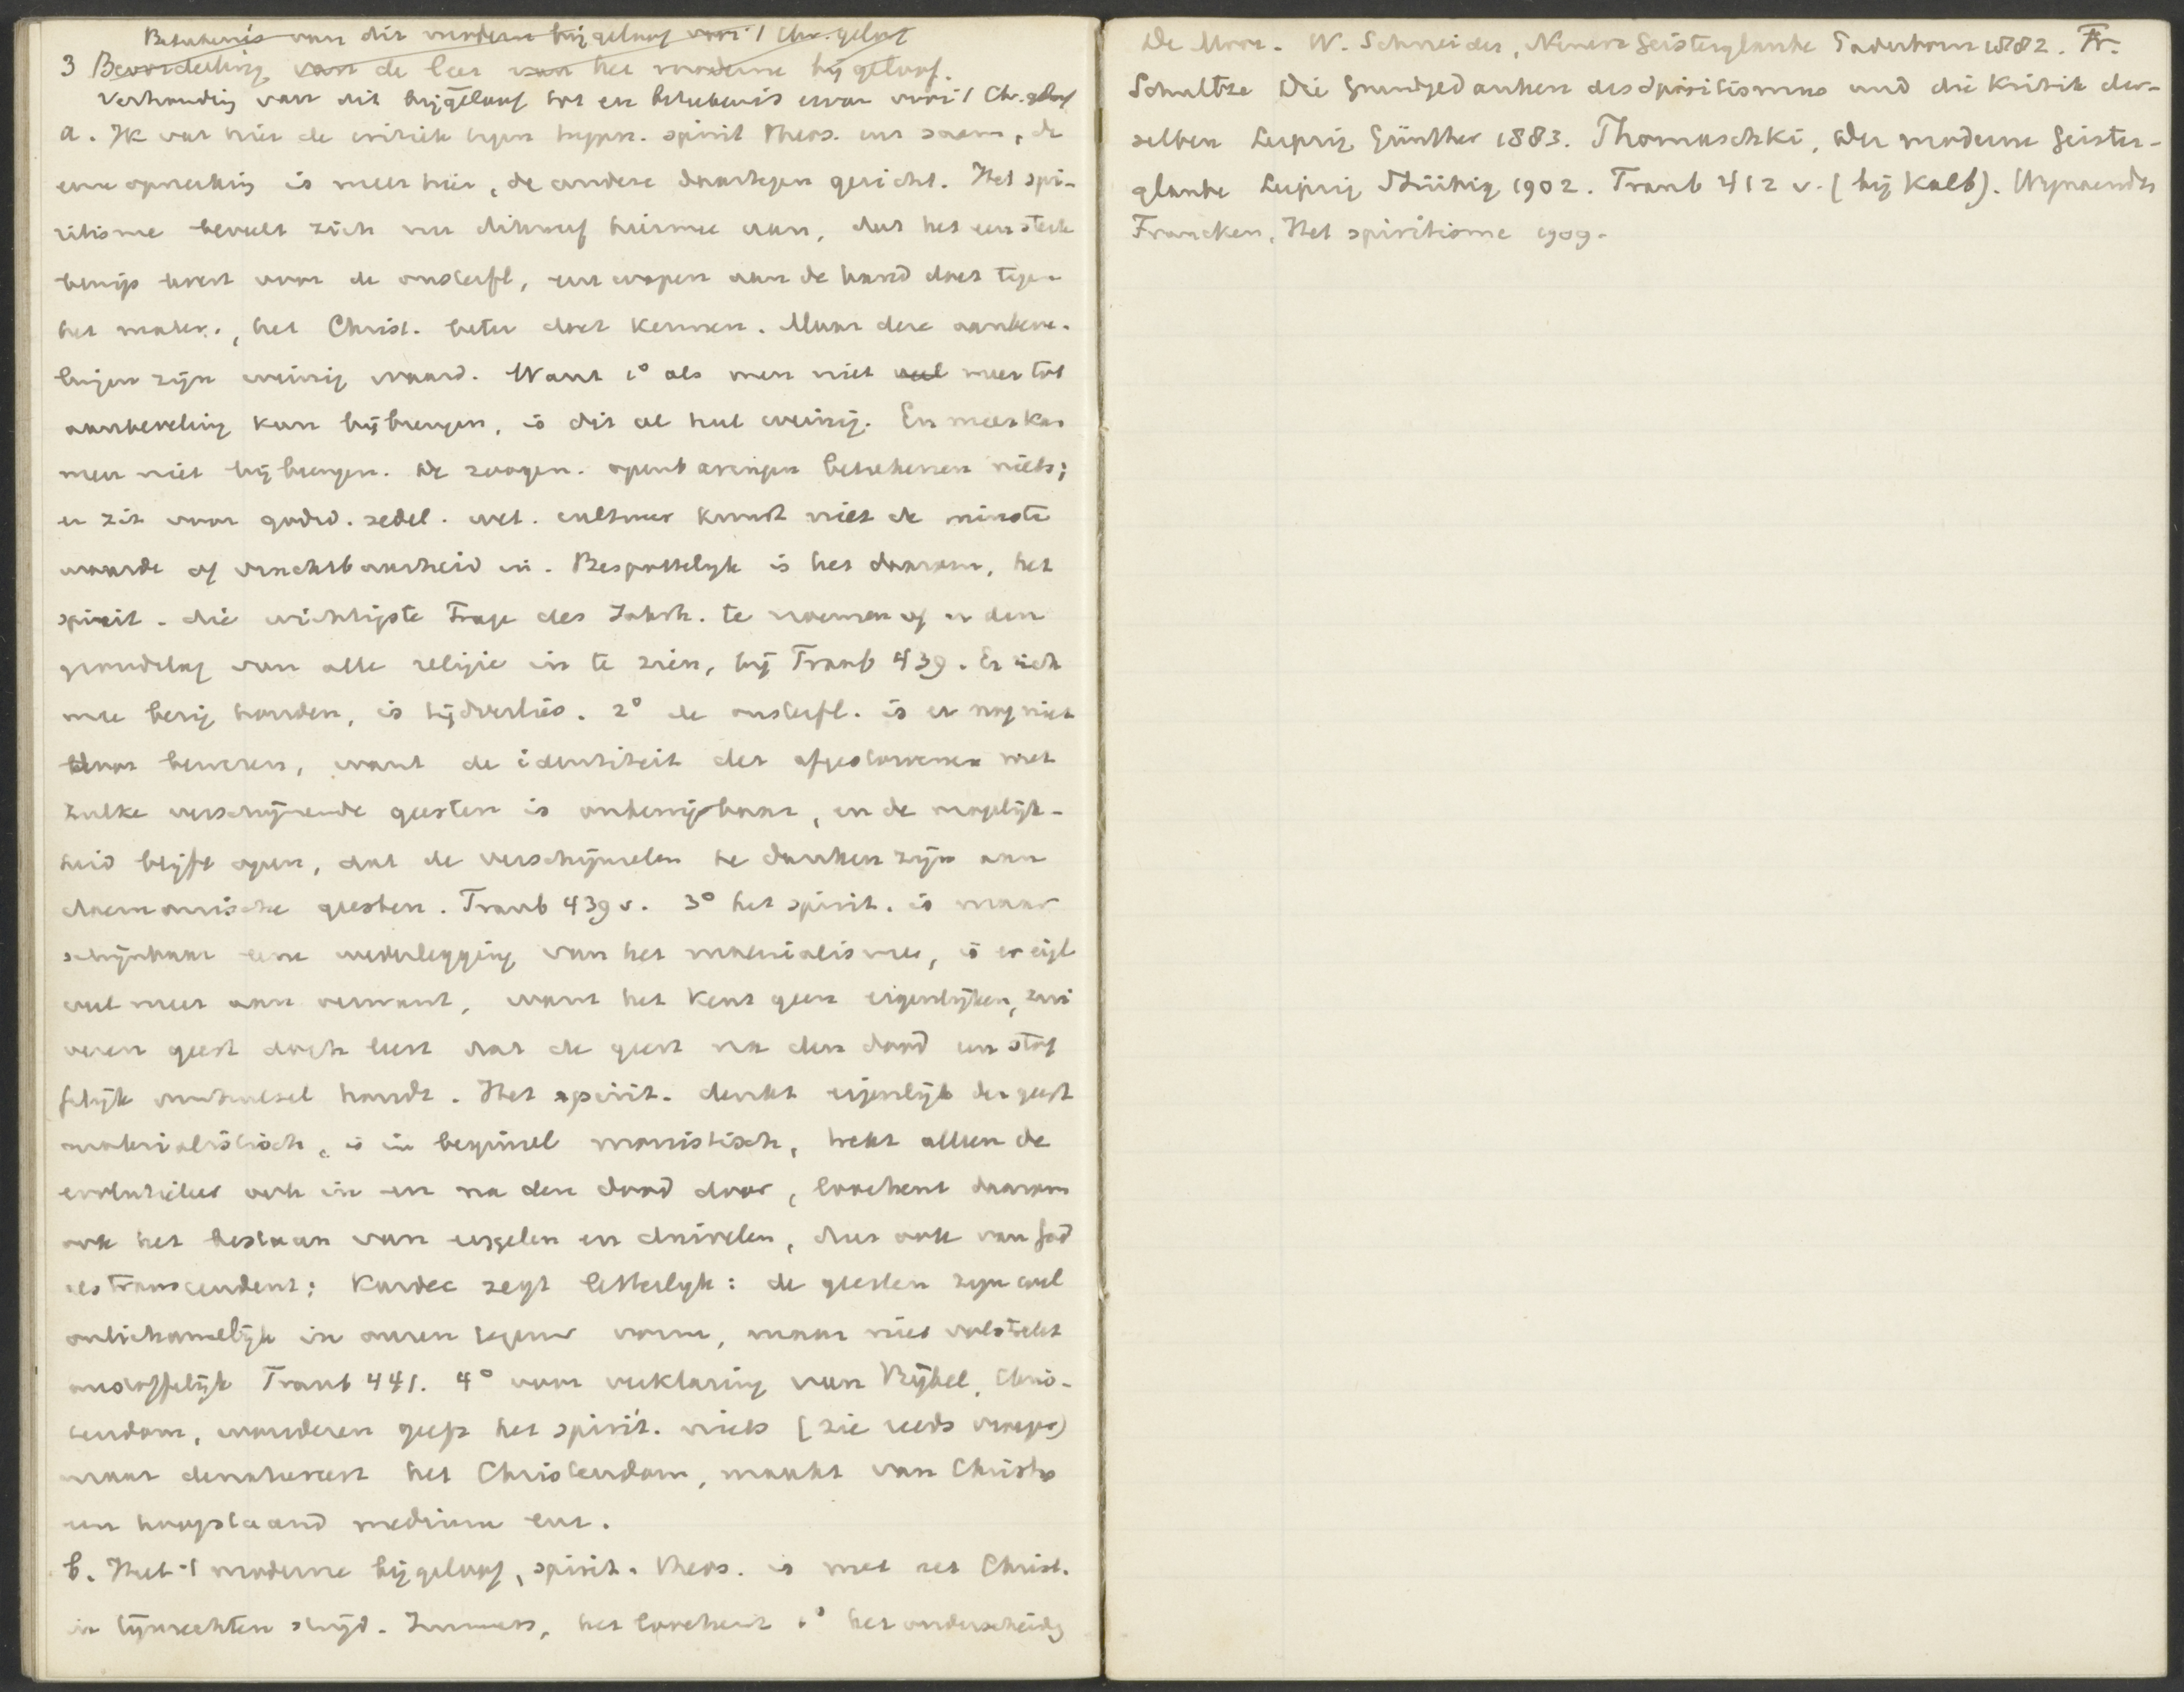 Beteekenis van dit modern bijgeloof voor 't Chr. geloof
3 Beoordeeling van de leer van het moderne bijgeloof.
Verhouding van dit bijgeloof tot en beteekenis ervan voor 't Chr. geloof
a. Ik vat hier de critiek tegen hypn. spirit theos. enz saam, de
eene opmerking is meer hier, de andere daartegen gericht. Het spi-
ritisme beveelt zich nu dikwerf hiermee aan, dat het een sterk
bewijs levert voor de onsterfl, een wapen aan de hand doet tegen
het mater., het Christ. beter doet kennen. Maar deze aanbeve-
lingen zijn weinig waard. Want 1° als men niet veel meer tot
aanbeveling kan bijbrengen, is dit al heel weinig. En meer kan
men niet bijbrengen. De zoogen. openbaringen beteekenen niets;
er zit voor godsd. zedel. wet. cultuur kunst niet de minste
waarde of vruchtbaarheid in. Bespottelijk is het daarom, het
spirit. die wichtigste Frage des Jahrh. te noemen of er den
grondslag van alle religie in te zien, bij Traub 439. Er zich
mee bezig houden, is tijdverlies. 2° de onsterfl. is er nog niet
door bewezen, want de identiteit der afgestorvenen met
zulke verschijnende geesten is onbewijsbaar, en de mogelijk-
heid blijft open, dat de verschijnselen te danken zijn aan
daemonische geesten. Traub 439 v. 3° het spirit. is maar
schijnbaar eene wederlegging van het materialisme, is er eigl
veel meer aan verwant, want het kent geen eigenlijken, zui
veren geest doch leert dat de geest na den dood een stof
felijk omhulsel houdt. Het spirit. denkt eigenlijk den geest
materialistisch, is in beginsel monistisch, trekt alleen de
evolutieleer ook in en na den dood door, loochent daarom
ook het bestaan van engelen en duivelen, dus ook van God
als transcendent; Kardec zegt letterlijk: de geesten zijn wel
onlichamelijk in onzen tegenw vorm, maar niet volstrekt
onstoffelijk Traub 441. 4° voor verklaring van Bijbel, Chris-
tendom, wonderen geeft het spirit. niets (zie reeds vroeger)
maar denatureert het Christendom, maakt van Christus
een hoogstaand medium enz.
b. Heel 't moderne bijgeloof, spirit. theos. is met het Christ.
in lijnrechten strijd. Immers, het loochent 1° het onderscheidg
De Moor. W. Schneider, Neuere Geisterglaube Paderborn 1882. Fr.
Schultze Die Grundgedanken des Spiritismus und die Kritik der-
selben Leipzig Günther 1883. Thomaschki, Der moderne Geister-
glaube Leipzig 1902. Traub 412 v. (bij Kalb). Wijnaendts
Francken, Het spiritisme 1909.